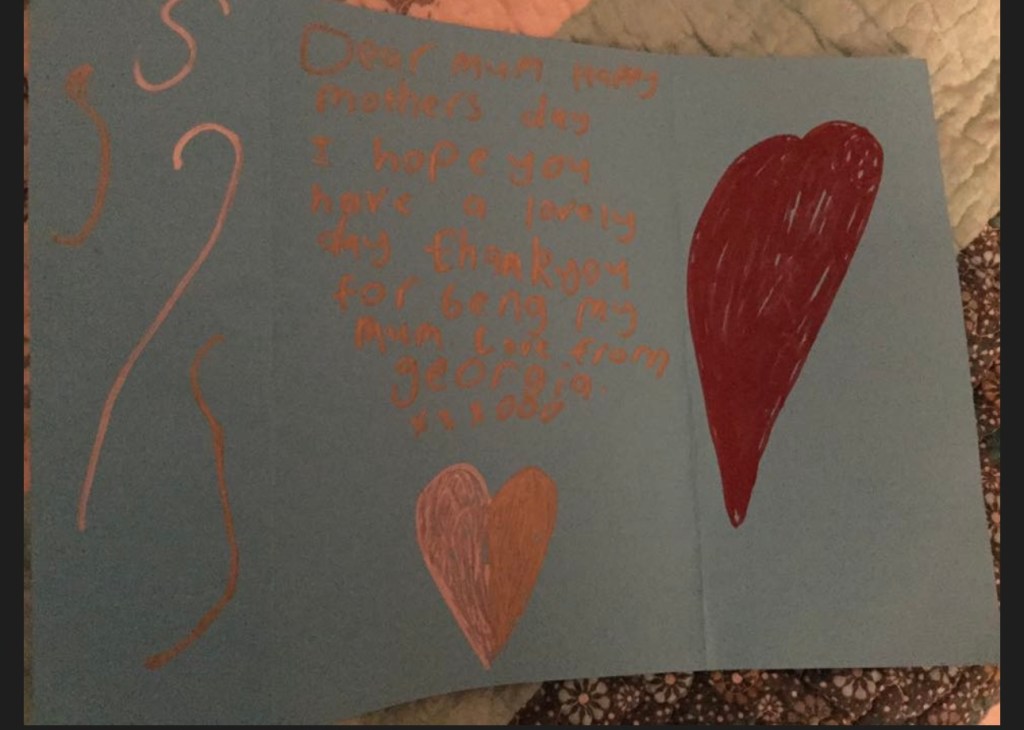 Dear mum Happy
mothers day
I hope you
have a lovely
day thankyou
for beng my
mum Love from
georgia.
xxx000